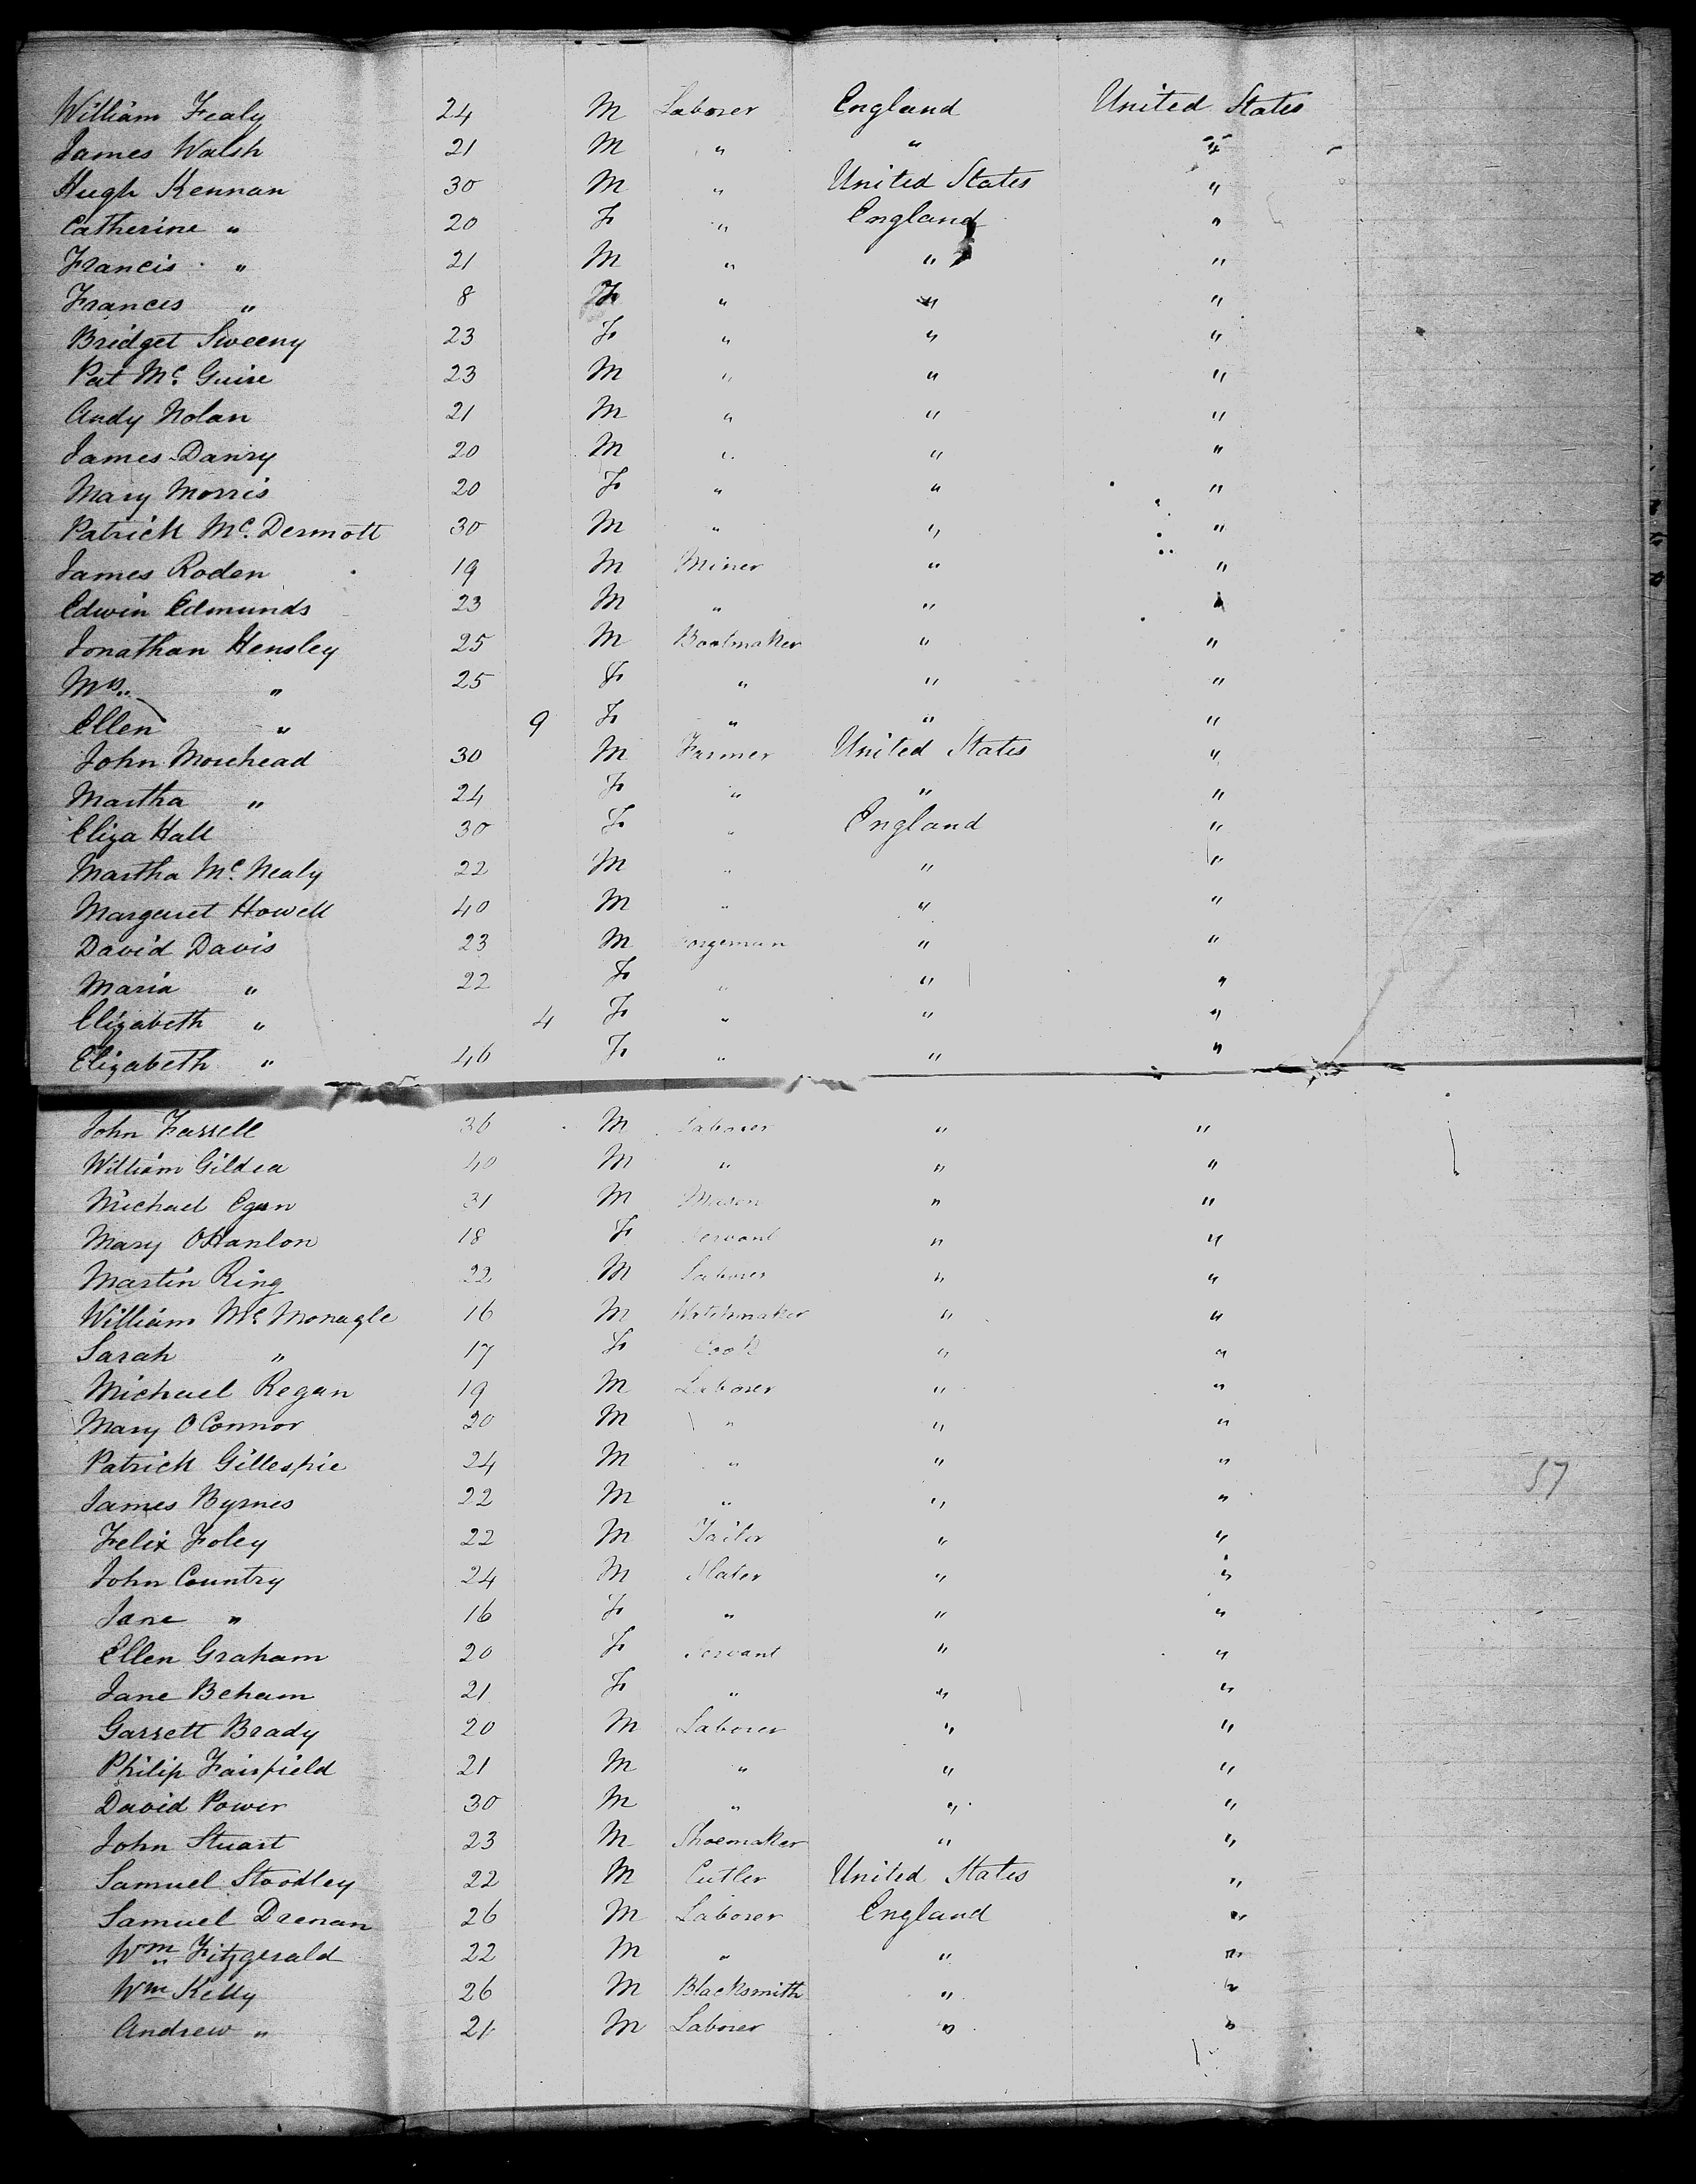 William Fealy 24 M Laborer England United States
James Walsh 21 M " " "
Hugh Kennan 30 M " United States "
Catherine " 20 F " England "
Francis " 21 M " " "
Frances " 8 F " " "
Bridget Sweeny 23 F " " "
Pat Mc Guire 23 M " " "
Andy Nolan 21 M " " "
James Danry 20 M " " "
Mary Morris 20 F " " "
Patrick Mc Dermott 30 M " " "
James Roden 19 M Miner " "
Edwin Edmunds 23 M " " "
Jonathan Hensley 25 M Bootmaker " "
Mrs " 25 F " " "
Ellen " 9 F " " "
John Morehead 30 M Farmer United States "
Martha " 24 F " " "
Eliza Hall 30 F " England "
Martha Mc Nealy 22 M " " "
Margaret Howell 40 M " " "
David Davis 23 M Forgeman " "
Maria " 22 F " " "
Elizabeth " 4 F " " "
Elizabeth " 46 F " " "
John Farrell 36 M Laborer " "
William Gildea 40 M " " "
Michael Egan 31 M Mason " "
Mary OHanlon 18 F Servant " "
Martin Ring 22 M Laborer " "
William Mc Monagle 16 M Watchmaker " "
Sarah " 17 F Cook " "
Michael Regan 19 M Laborer " "
Mary O Connor 20 M " " "
Patrick Gillespie 24 M " " "
57
James Byrnes 22 M " " "
Felix Foley 22 M Tailor " "
John Country 24 M Slater " "
Jane " 16 F " " "
Ellen Graham 20 F Servant " "
Jane Beham 21 F " " "
Garrett Brady 20 M Laborer " "
Philip Fairfield 21 M " " "
David Power 30 M " " "
John Stuart 23 M Shoemaker " "
Samuel Stoodley 22 M Cutler United States "
Samuel Drenan 26 M Laborer England "
Wm Fitzgerald 22 M " " "
Wm Kelly 26 M Blacksmith " "
Andrew " 21 M Laborer " "